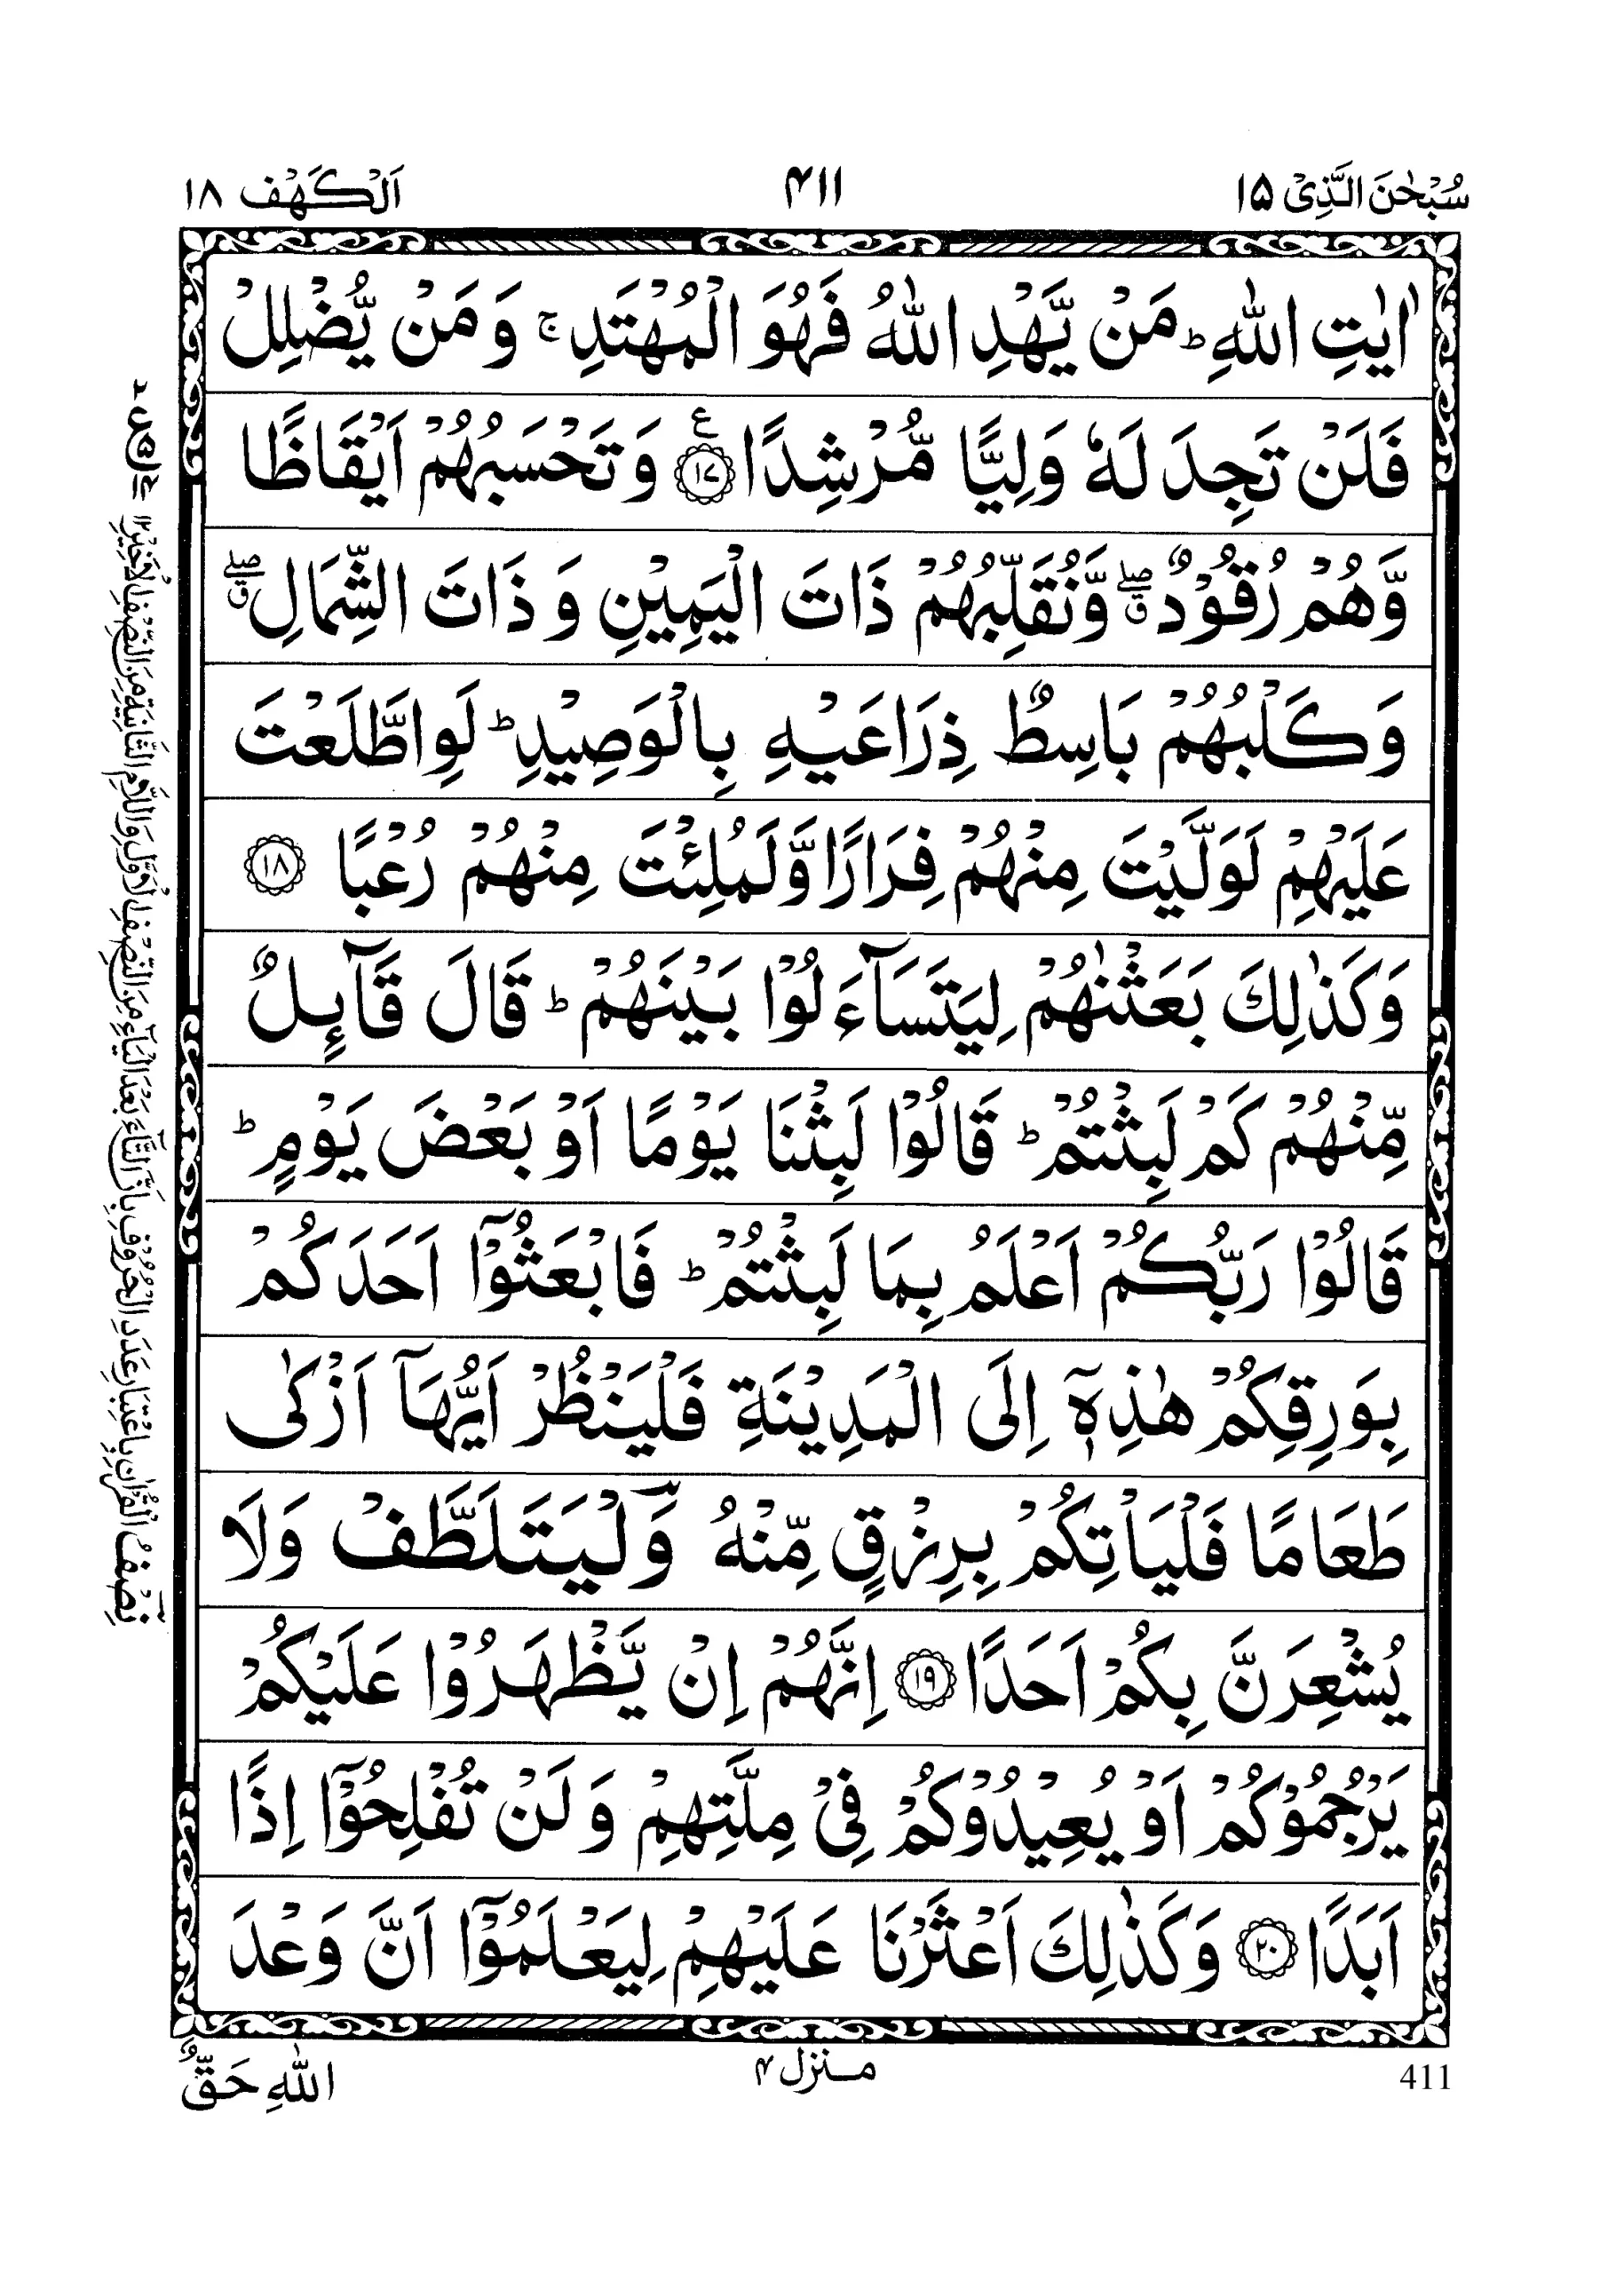 سُبْحٰنَ الَّذِیْ ۱۵
۴۱۱
اَلْكَهْف ۱۸
اٰیٰتِ اللّٰهِ ؕ مَنْ یَّهْدِ اللّٰهُ فَهُوَ الْمُهْتَدِ ۚ وَ مَنْ یُّضْلِلْ
فَلَنْ تَجِدَ لَهٗ وَلِیًّا مُّرْشِدًا ۧ ﴿۱۷﴾ وَ تَحْسَبُهُمْ اَیْقَاظًا
وَّ هُمْ رُقُوْدٌ ۖۗ وَّ نُقَلِّبُهُمْ ذَاتَ الْیَمِیْنِ وَ ذَاتَ الشِّمَالِ ۖۗ
وَ كَلْبُهُمْ بَاسِطٌ ذِرَاعَیْهِ بِالْوَصِیْدِ ؕ لَوِ اطَّلَعْتَ
عَلَیْهِمْ لَوَلَّیْتَ مِنْهُمْ فِرَارًا وَّ لَمُلِئْتَ مِنْهُمْ رُعْبًا ﴿۱۸﴾
وَ كَذٰلِكَ بَعَثْنٰهُمْ لِیَتَسَآءَلُوْا بَیْنَهُمْ ؕ قَالَ قَآئِلٌ
مِّنْهُمْ كَمْ لَبِثْتُمْ ؕ قَالُوْا لَبِثْنَا یَوْمًا اَوْ بَعْضَ یَوْمٍ ؕ
قَالُوْا رَبُّكُمْ اَعْلَمُ بِمَا لَبِثْتُمْ ؕ فَابْعَثُوْۤا اَحَدَكُمْ
بِوَرِقِكُمْ هٰذِهٖۤ اِلَی الْمَدِیْنَةِ فَلْیَنْظُرْ اَیُّهَاۤ اَزْكٰی
طَعَامًا فَلْیَاْتِكُمْ بِرِزْقٍ مِّنْهُ وَلْیَتَلَطَّفْ وَ لَا
یُشْعِرَنَّ بِكُمْ اَحَدًا ﴿۱۹﴾ اِنَّهُمْ اِنْ یَّظْهَرُوْا عَلَیْكُمْ
یَرْجُمُوْكُمْ اَوْ یُعِیْدُوْكُمْ فِیْ مِلَّتِهِمْ وَ لَنْ تُفْلِحُوْۤا اِذًا
اَبَدًا ﴿۲۰﴾ وَ كَذٰلِكَ اَعْثَرْنَا عَلَیْهِمْ لِیَعْلَمُوْۤا اَنَّ وَعْدَ
اللّٰهِ حَقٌّ
منزل ۴
411
نِصْفُ الْقُرْاٰنِ بِاعْتِبَارِ عَدَدِ الْحُرُوْفِ بِاَنَّ التَّآءَ بَعْدَ الْیَآءِ مِنَ النِّصْفِ الْاَوَّلِ وَاللَّامِ الثَّانِیَةِ مِنَ النِّصْفِ الْاَخِیْرِ ۱۲